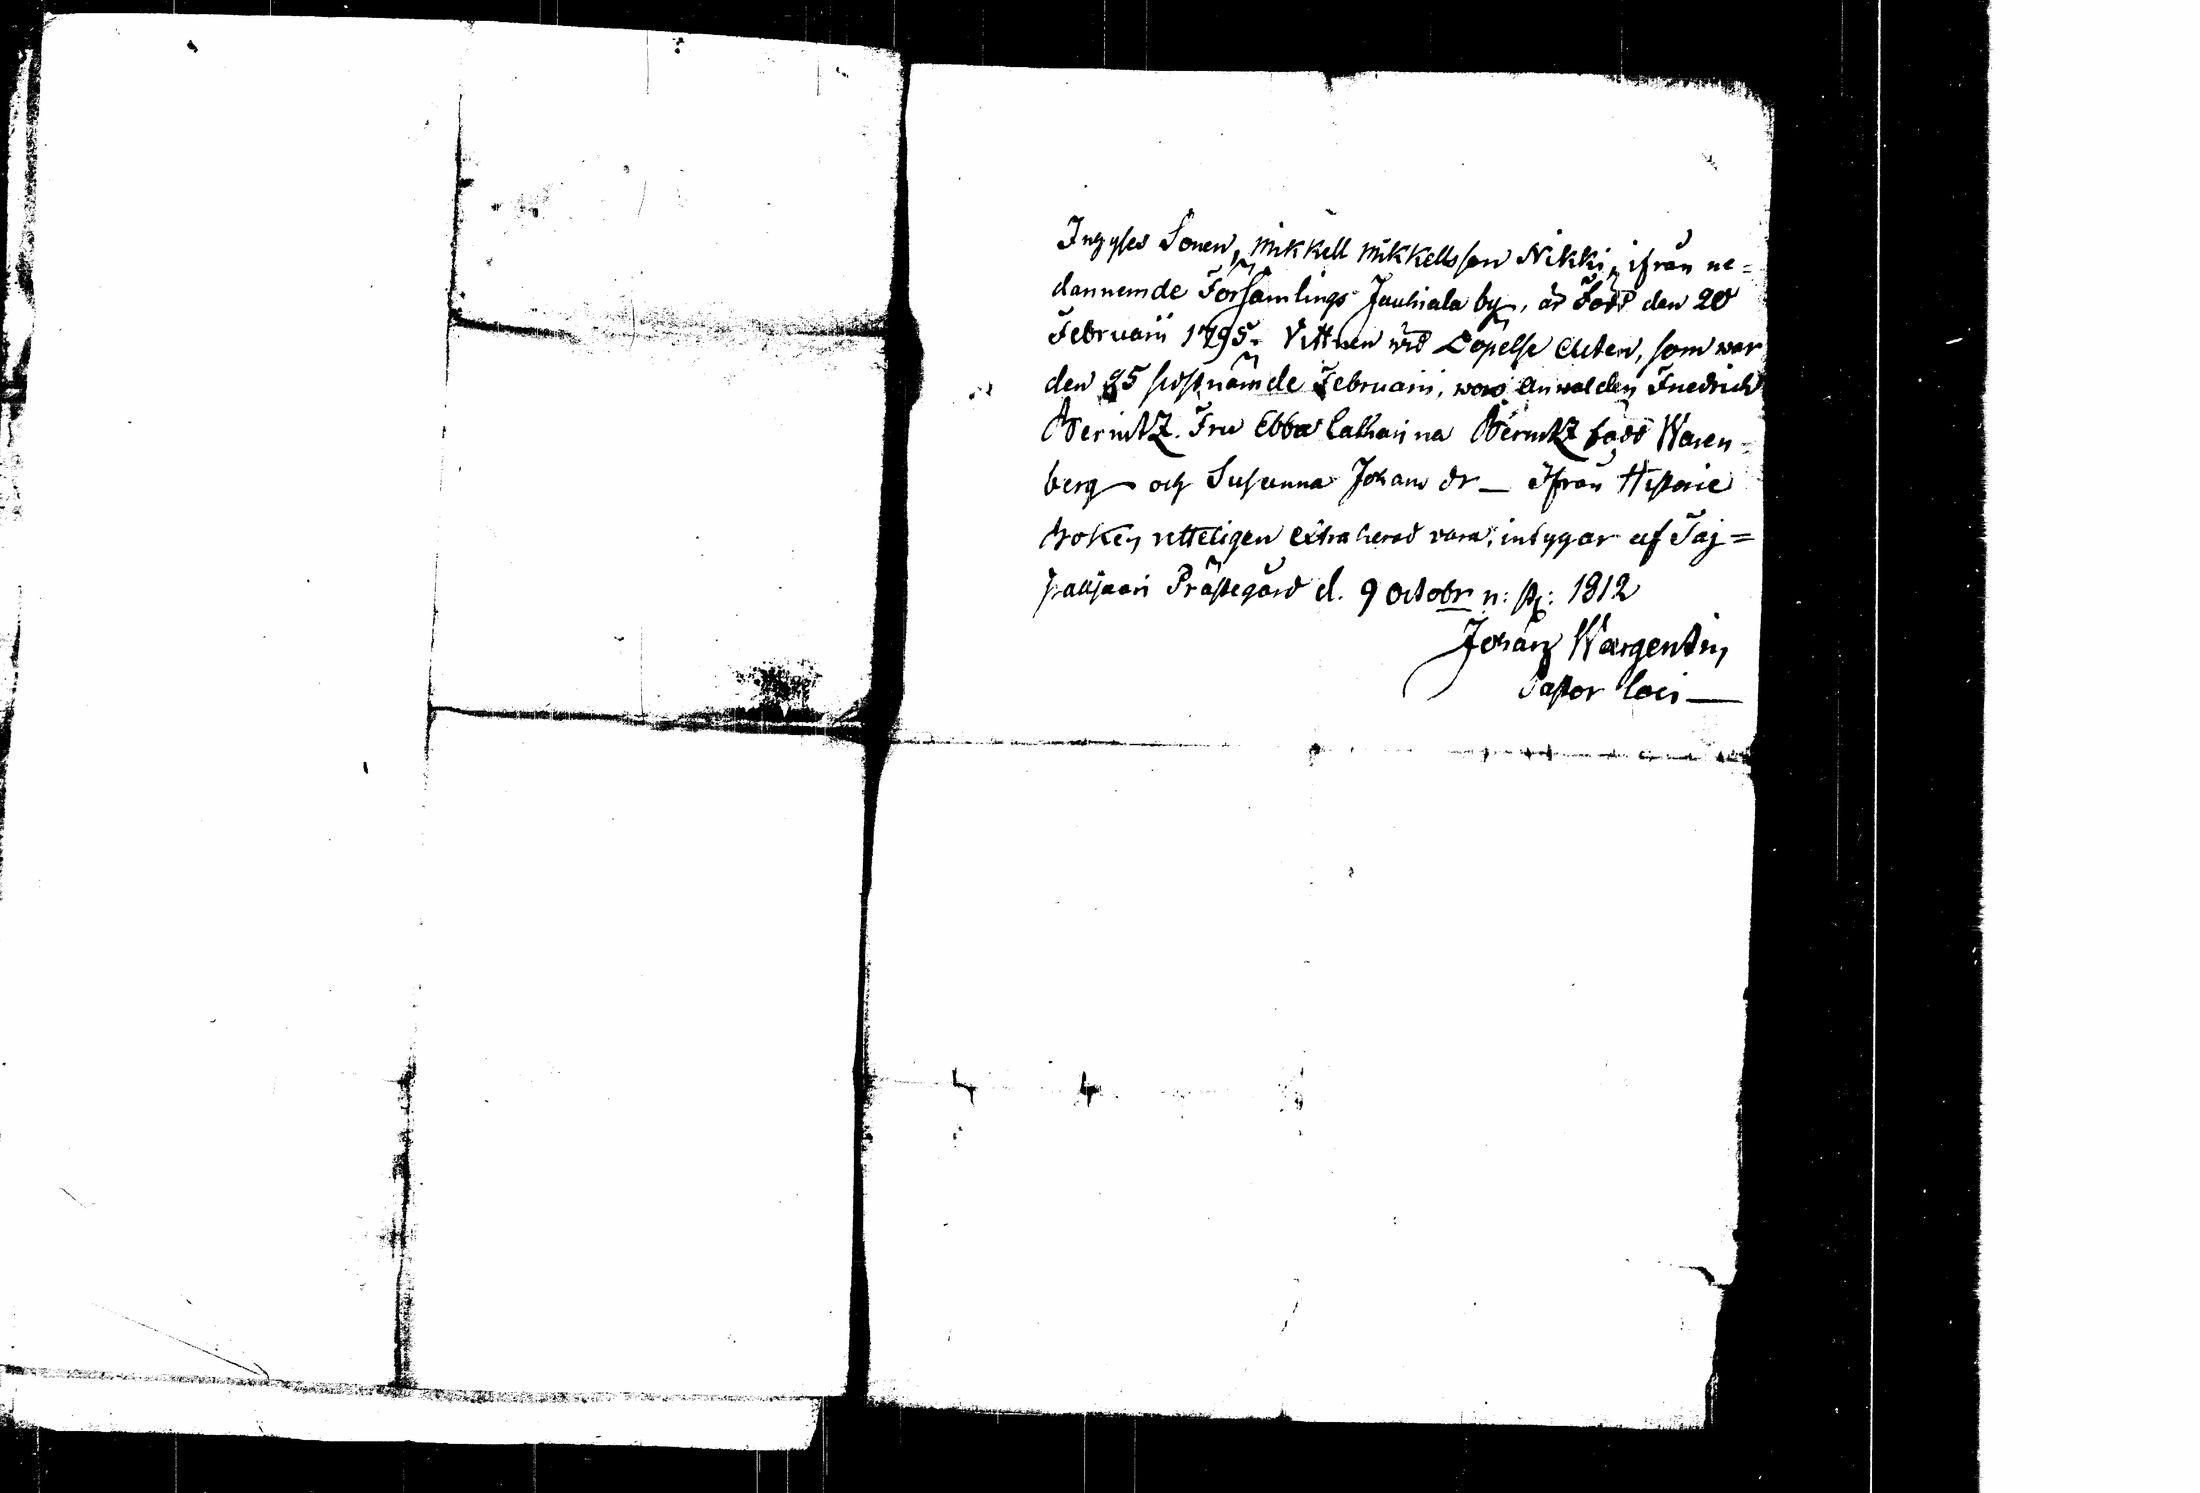 Sonen, Mikkell Mikkellsson Nikki, ifrån ne=
dannemde Församlings Jauhiala by, är Född den 20
Februarii 1795. Vittnen wid Döpelse Acten, som war
den 25 sidstnämde Februarii, woro Friedrich
Bernitz. Fru Ebba Catharina Bernitz född Wasen=
berg och Susanna Johans dr_ Ifrån Historie
boken retteligen extraherad vara, intygar af Taj=
palsaari Prästegård d. 9 Octobr n: st: 1812
Johan Wargentin
Pastor loci_